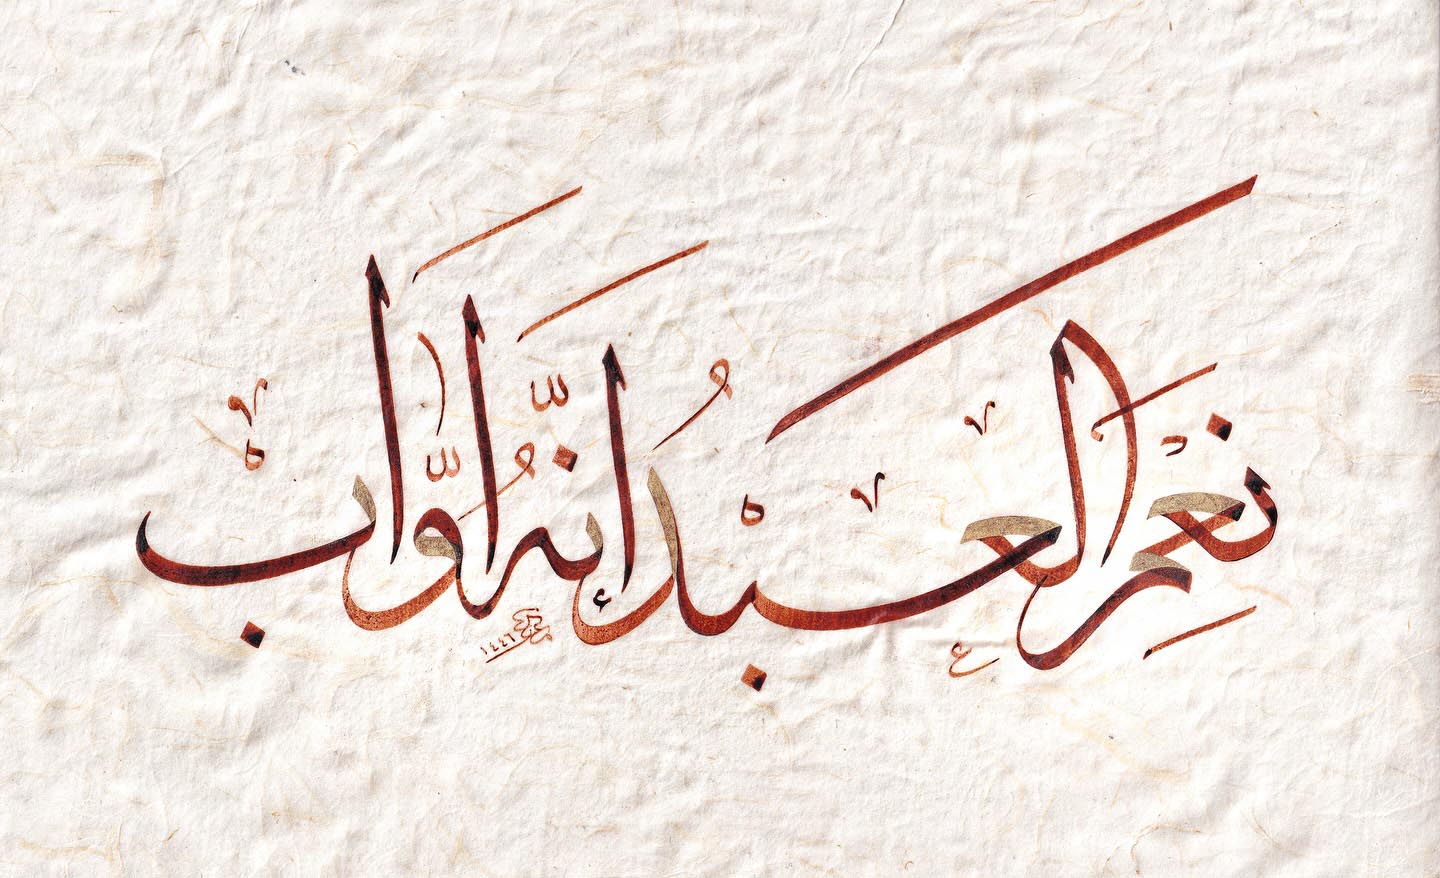 نِعْمَ الْعَبْدُ إِنَّهُ أَوَّابٌ
١٤٤٦